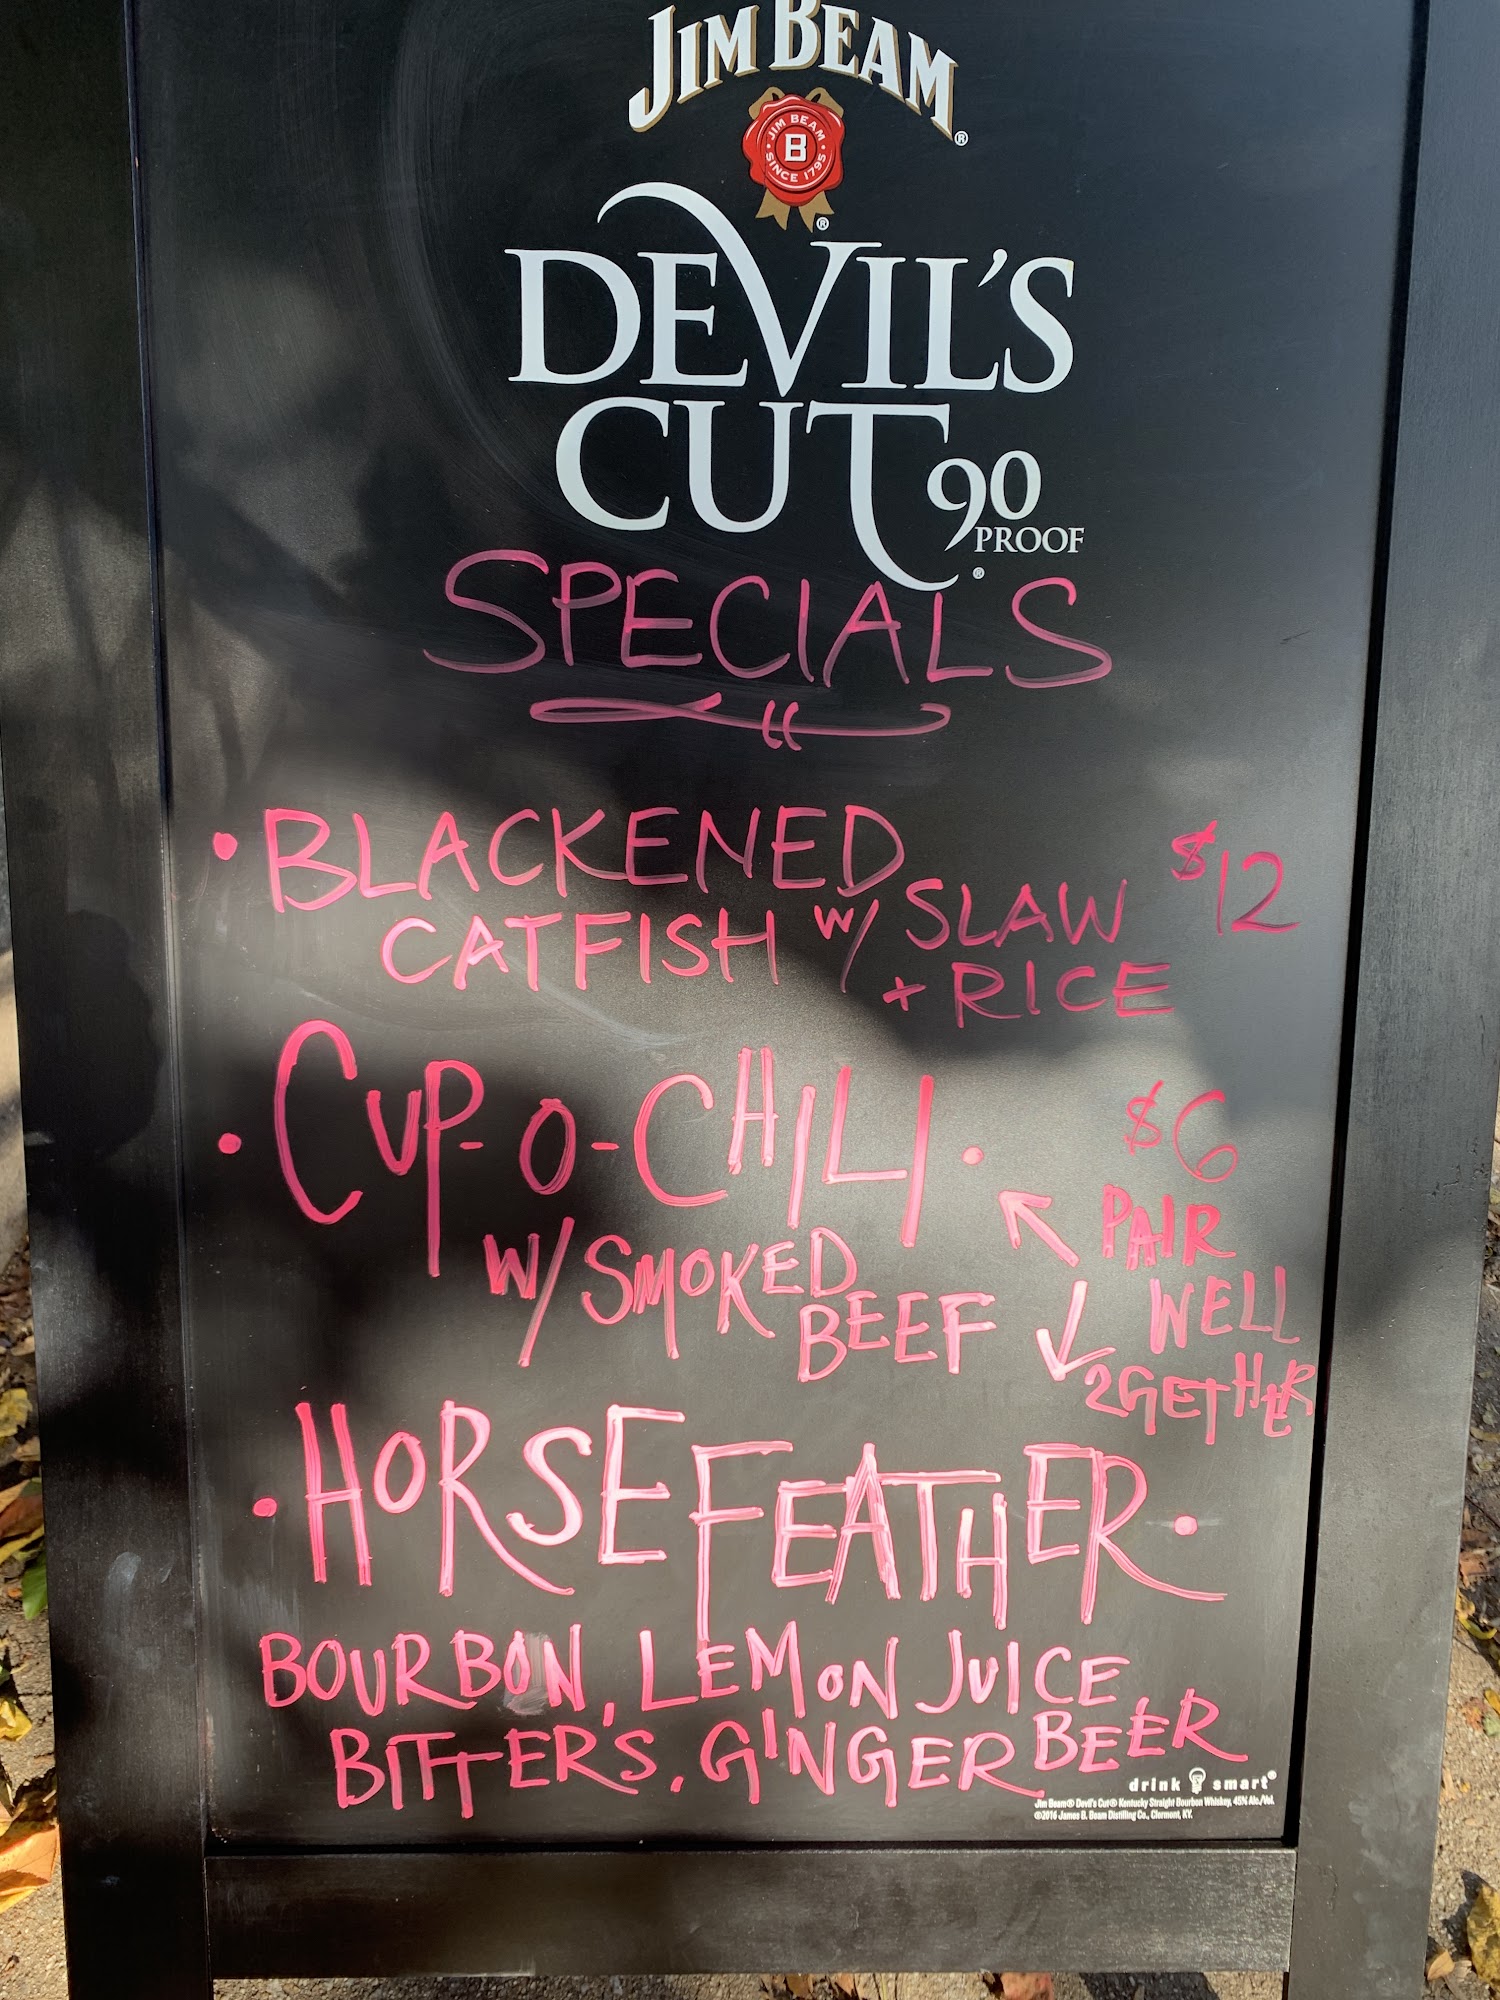 JIM BEAM®
JIM BEAM
B
SINCE 1795
®
DEVIL'S
CUT 90
PROOF
®
SPECIALS
• BLACKENED
CATFISH W/ SLAW $12
+ RICE
• CUP-O-CHILI • $6
W/ SMOKED
BEEF
PAIR
WELL
2GETHER
• HORSEFEATHER •
BOURBON, LEMON JUICE,
BITTERS, GINGER BEER
drink smart®
Jim Beam® Devil's Cut® Kentucky Straight Bourbon Whiskey, 45% Alc./Vol.
©2016 James B. Beam Distilling Co., Clermont, KY.